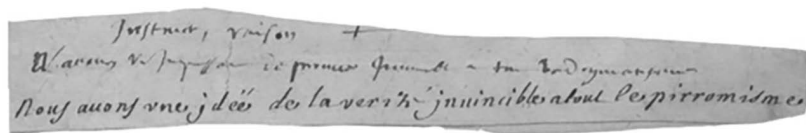 Instinct, raison +
N avons impuissance de prouver invincible a tout le dogmatisme
Nous auons vne jdéé de la verité jnuincible a tout le pirronisme